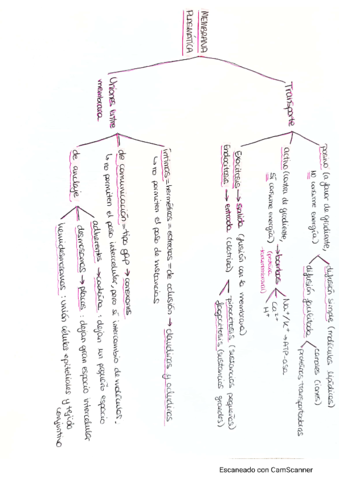 MEMBRANA
PLASMÁTICA
Transporte
pasivo (a favor de gradiente,
no consume energía)
difusión simple (moléculas lipídicas)
difusión facilitada
canales (iones)
proteínas transportadoras
activo (contra de gradiente,
sí consume energía)
bombas
Na⁺/K⁺ → ATP-asa
Ca²⁺
H⁺
Exocitosis → salida (fusión con la membrana)
Endocitosis → entrada (celectivo)
pinocitosis (sustancias pequeñas)
fagocitosis (sustancias grandes)
Uniones entre
membrana
íntimas = herméticas = estrechas = de oclusión → claudinas y ocludinas
↳ no permiten el paso de sustancias
de comunicación = tipo gap → conexones
↳ no permiten el paso intercelular, pero sí intercambio de moléculas.
de anclaje
adherentes → cadherina: dejan un pequeño espacio
desmosomas → placas: dejan gran espacio intercelular
hemidesmosomas: unión células epiteliales y tejido
conjuntivo
Escaneado con CamScanner